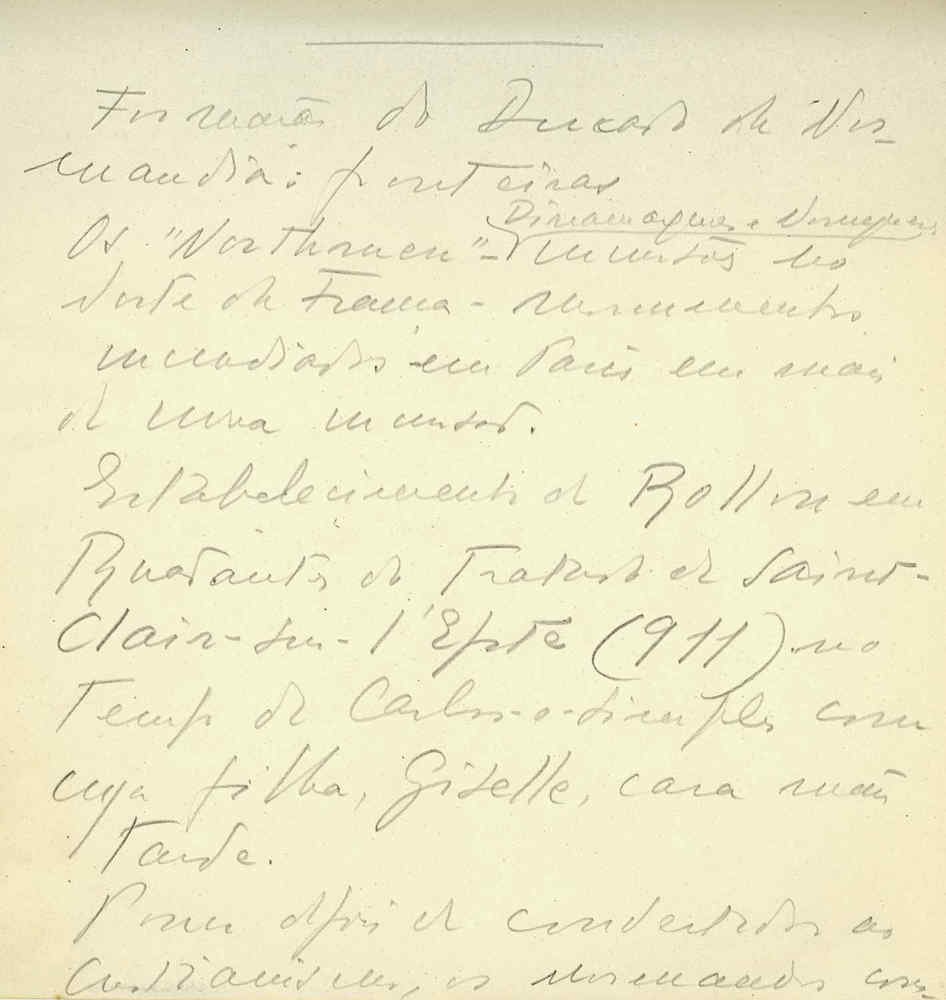 Formação do Ducado de Nor-
mandia: fronteiras
Dinamarqueses e Noruegueses
Os "Northmen" - incursões no
Norte da França - monumentos
incendiados em Paris em mais
de uma incursão.
Estabelecimento de Rollon em
do Tratado de Saint-
Clair-sur-l'Epte (911) no
tempo de Carlos-o-Simples com
cuja filha, Giselle, casa mais
tarde.
Pouco depois de convertidos ao
Cristianismo, os normandos con-